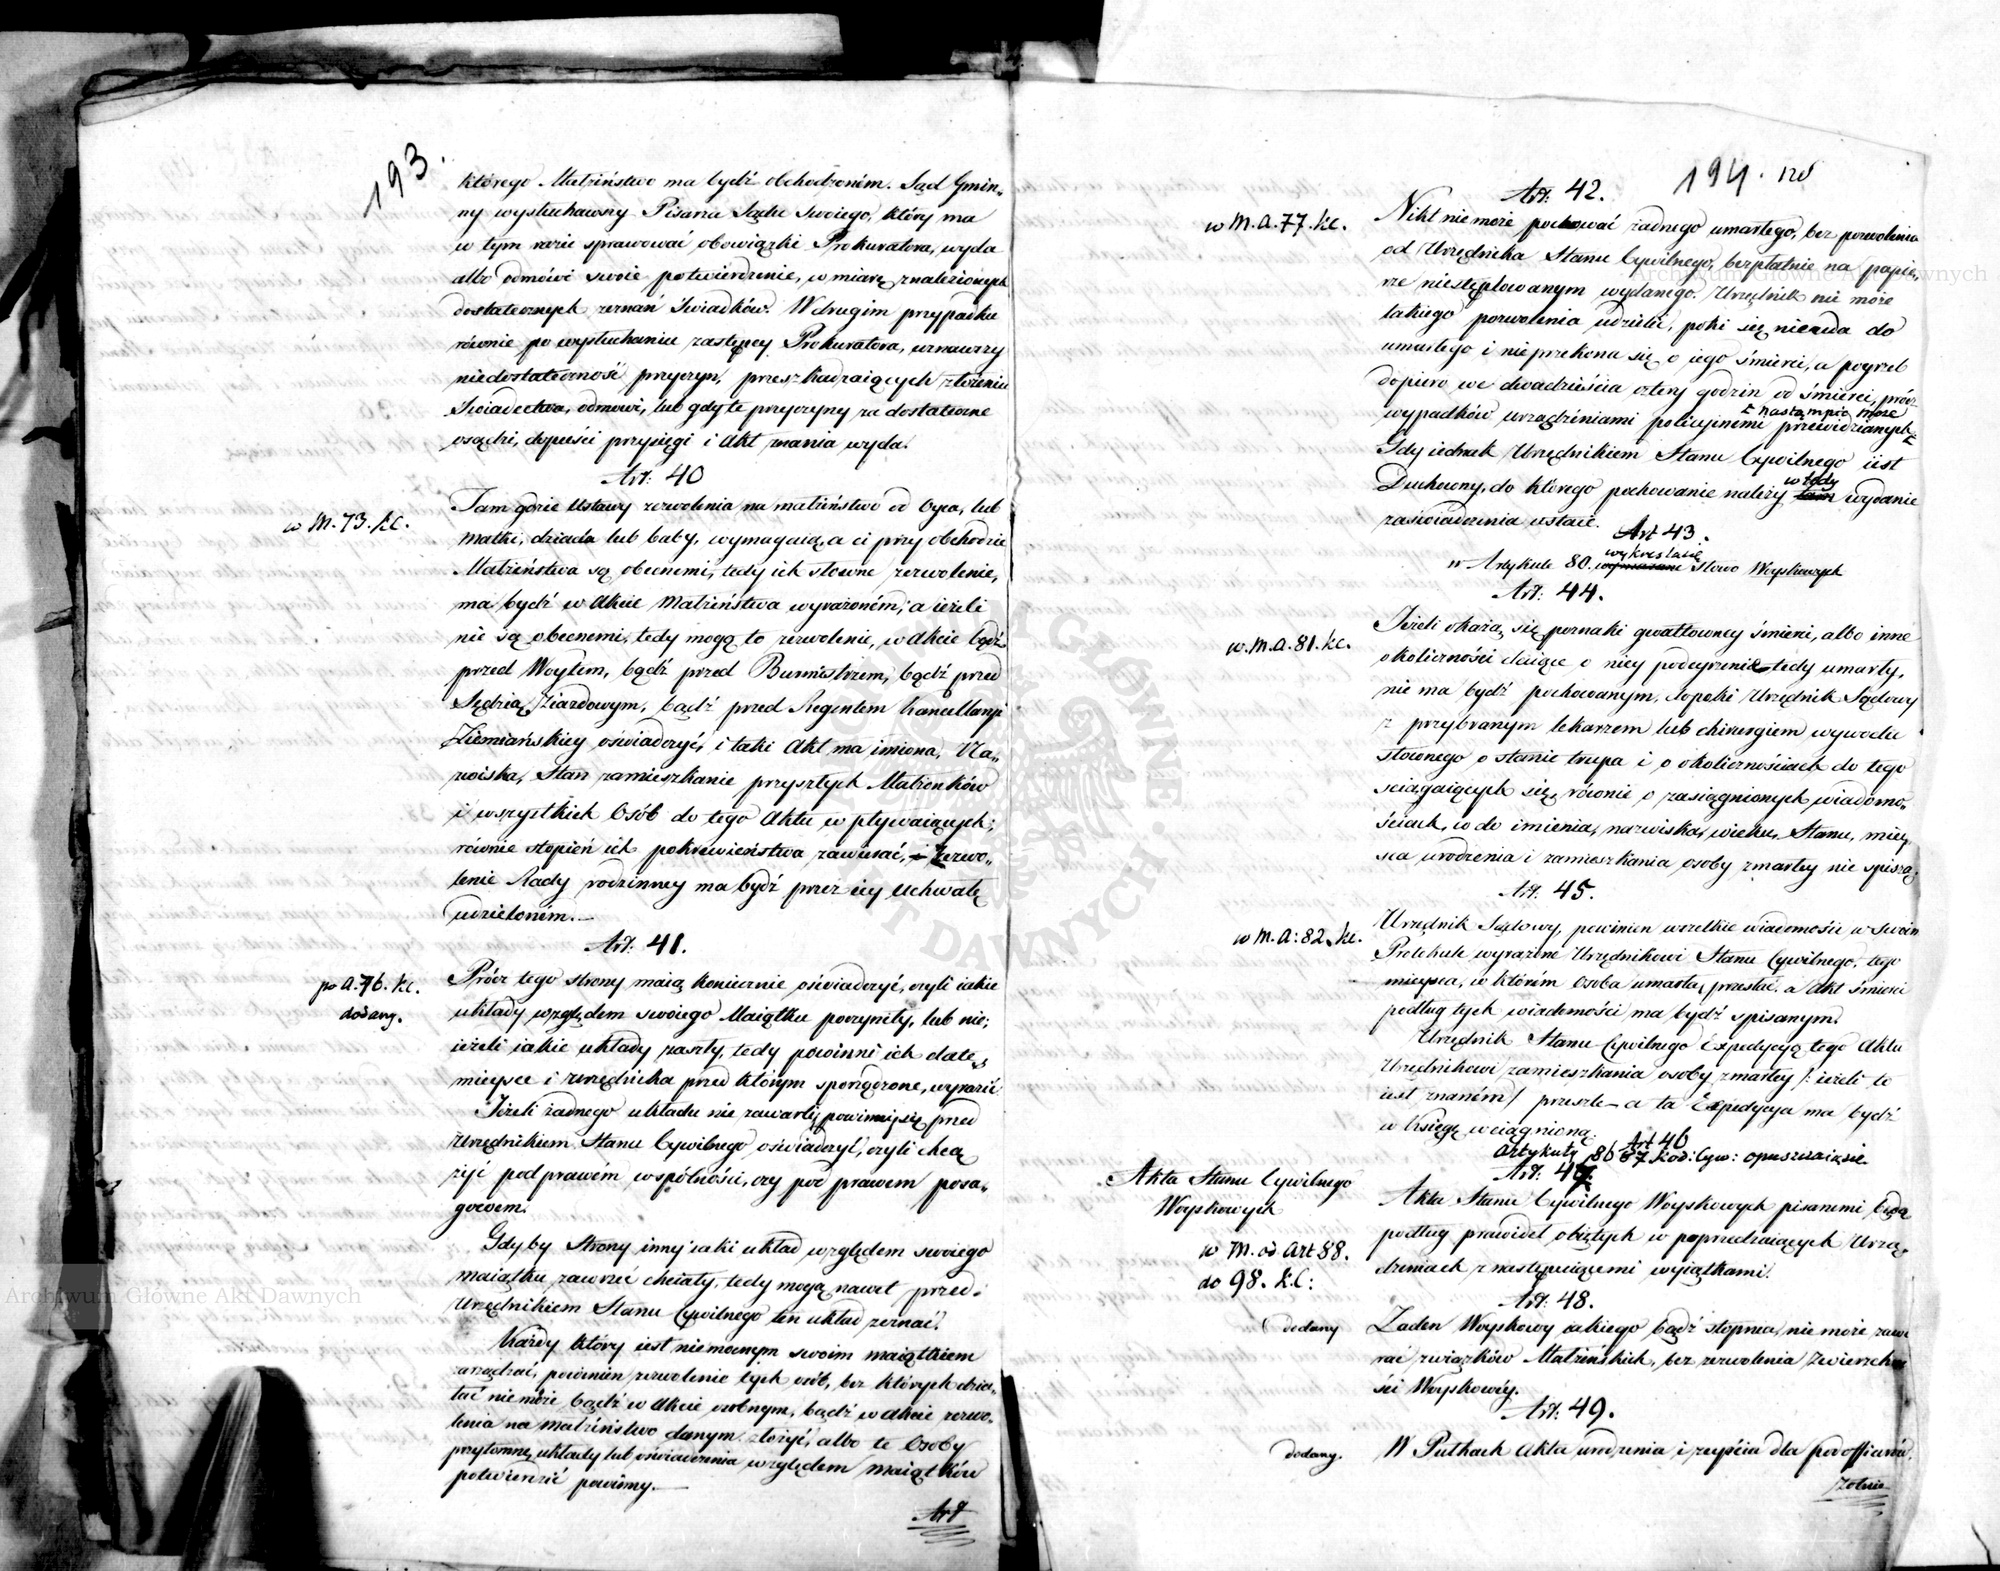 193.
którego Małżeństwo ma bydź obchodzoném. Sąd Gmin-
ny wysłuchawszy Pisarza Sądu swoiego, który ma
w tym razie sprawować obowiązki Prokuratora, wyda
albo odmówi swoie potwierdzenie, w miarę znalezionych
dostatecznych zeznań Świadków. W drugim przypadku
równie po wysłuchaniu zastępcy Prokuratora, uznawszy
niedostateczność przyczyn, przeszkadzaiących złożeniu
Świadectwa, odmówi, lub gdy te przyczyny za dostateczne
osądzi, dopuści przysięgi i Akt znania wyda.
Art: 40
w M. 73. k.c.
Tam gdzie Ustawy zezwolenia na małżeństwo od Oyca, lub
matki, dziada lub baby, wymagaią, a ci przy obchodzie
Małżeństwa są obecnemi, tedy ich słowne zezwolenie,
ma bydź w Akcie Małżeństwa wyrażoném; a ieżeli
nie są obecnemi, tedy mogą to zezwolenie, w Akcie bądź
przed Woytem, bądź przed Burmistrzem, bądź przed
Sędzią Ziazdowym, bądź przed Regentem Kancellaryi
Ziemiańskiey oświadczyć, i taki Akt ma imiona, Na-
zwiska, Stan zamieszkanie przyszłych Małżonków
i wszystkich Osób do tego Aktu wpływaiących;
równie stopień ich pokrewieństwa zawierać, Zezwo-
lenie Rady rodzinney ma bydź przez iey Uchwałę
udzieloném.
Art: 41.
po A. 76. k.c.
dodany.
Prócz tego strony maią koniecznie oświadczyć, czyli iakie
układy względem swoiego Maiątku poczyniły, lub nie;
ieżeli iakie układy zaszły, tedy powinni ich datę,
mieysce i urzędnika przed którym sporządzone, wyrazić
Jeżeli żadnego układu nie zawarli, powinni się przed
Urzędnikiem Stanu Cywilnego oświadczyć, czyli chcą
żyć pod prawém wspólności, czy pod prawem posa-
gowem.
Gdyby Strony inny iaki układ względem swoiego
maiątku zawrzeć chciały, tedy mogą nawet przed
Urzędnikiem Stanu Cywilnego ten układ zeznać.
Każdy który iest niemocnym swoim maiątkiem
zarządzać, powinien zezwolenie tych osób, bez których dzia-
łać nie może, bądź w Akcie osobnym, bądź w Akcie zezwo-
lenia na Małżeństwo danym złożyć, albo te Osoby
przytomne układy lub oświadczenia względem maiątków
potwierdzić powinny.
Art
194. 128
Art: 42.
w M. A. 77. k.c.
Nikt nie może pochować żadnego umarłego, bez pozwolenia
od Urzędnika Stanu Cywilnego, bezpłatnie na papie-
rze niestęplowanym wydanego. Urzędnik nie może
takiego pozwolenia udzielić, poki się nieuda do
umarłego i nieprzekona się o iego śmierci, a pogrzeb
dopiero we dwadzieścia cztery godzin od śmierci, prócz
nastąpić może
wypadków urządzeniami policyinemi przewidzianych
Gdy iednak Urzędnikiem Stanu Cywilnego iest
wtedy
Duchowny, do którego pochowanie należy tam wydanie
zaświadczenia ustaie.
Art 43.
wykreślasię
w Artykule 80. słowo Woyskowych
Art: 44.
w. M. A. 81. k.c.
Jeżeli okażą się poznaki gwałtowney śmierci, albo inne
okoliczności daiące o niey podeyrzenie tedy umarły,
nie ma bydź pochowanym, dopoki Urzędnik Sądowy
z przybranym lekarzem lub chirurgiem wywodu
słownego o stanie trupa i o okolicznościach do tego
ściągaiących się, równie o zasiągnionych wiadomo-
ściach, co do imienia, nazwiska, wieku, Stanu, miey-
sca urodzenia i zamieszkania osoby zmarłey nie spiszą.
Art. 45.
w M. A: 82. k.c.
Urzędnik Sądowy, powinien wszelkie wiadomości w swoim
Protokule wyrażone Urzędnikowi Stanu Cywilnego, tego
mieysca, w którém Osoba umarła, przesłać, a Akt śmierci
podług tych wiadomości ma bydź spisanym.
Urzędnik Stanu Cywilnego Expedycyą tego Aktu
Urzędnikowi zamieszkania osoby zmarłey /: ieżeli to
iest znaném/ przeszle – a ta Expedycya ma bydź
w Księgę wciągnioną
Art 46
Artykuły 86 87 Kod: Cyw: opuszczaiąsie
Art: 47.
Akta Stanu Cywilnego
Woyskowych
w M. od Art 88.
do 98. k.C:
Akta Stanu Cywilnego Woyskowych pisanemi będą
podług prawideł obiętych w poprzedzaiących Urzą-
dzeniach z następuiącemi wyiątkami.
Art: 48.
dodany
Żaden Woyskowy iakiego bądź stopnia, nie może zawi-
rać związków Małżeńskich, bez zezwolenia Zwierzchno-
ści Woyskowéy.
Art: 49.
dodany.
W Pułkach Akta urodzenia i zeyścia dla podofficerów,
żołnie-